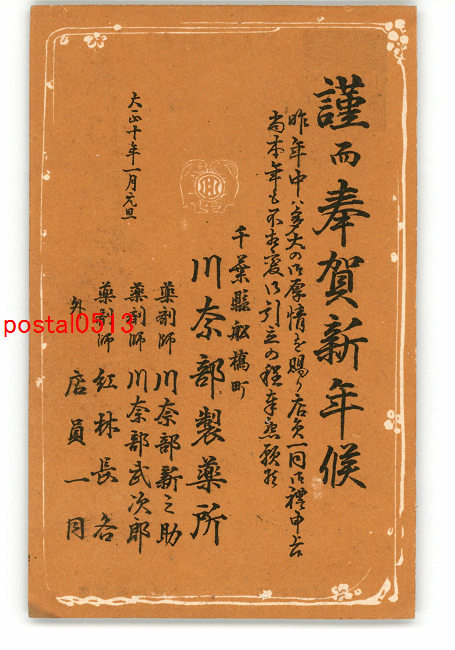 謹而奉賀新年候
昨年中ハ多大の御厚情を賜り店員一同御禮申上候
尚本年も不相変御引立の程奉懇願候
千葉縣船橋町
川奈部製薬所
薬剤師 川奈部新之助
薬剤師 川奈部武次郎
薬剤師 紅林長
外 店員一同
大正十年一月元旦
postal0513